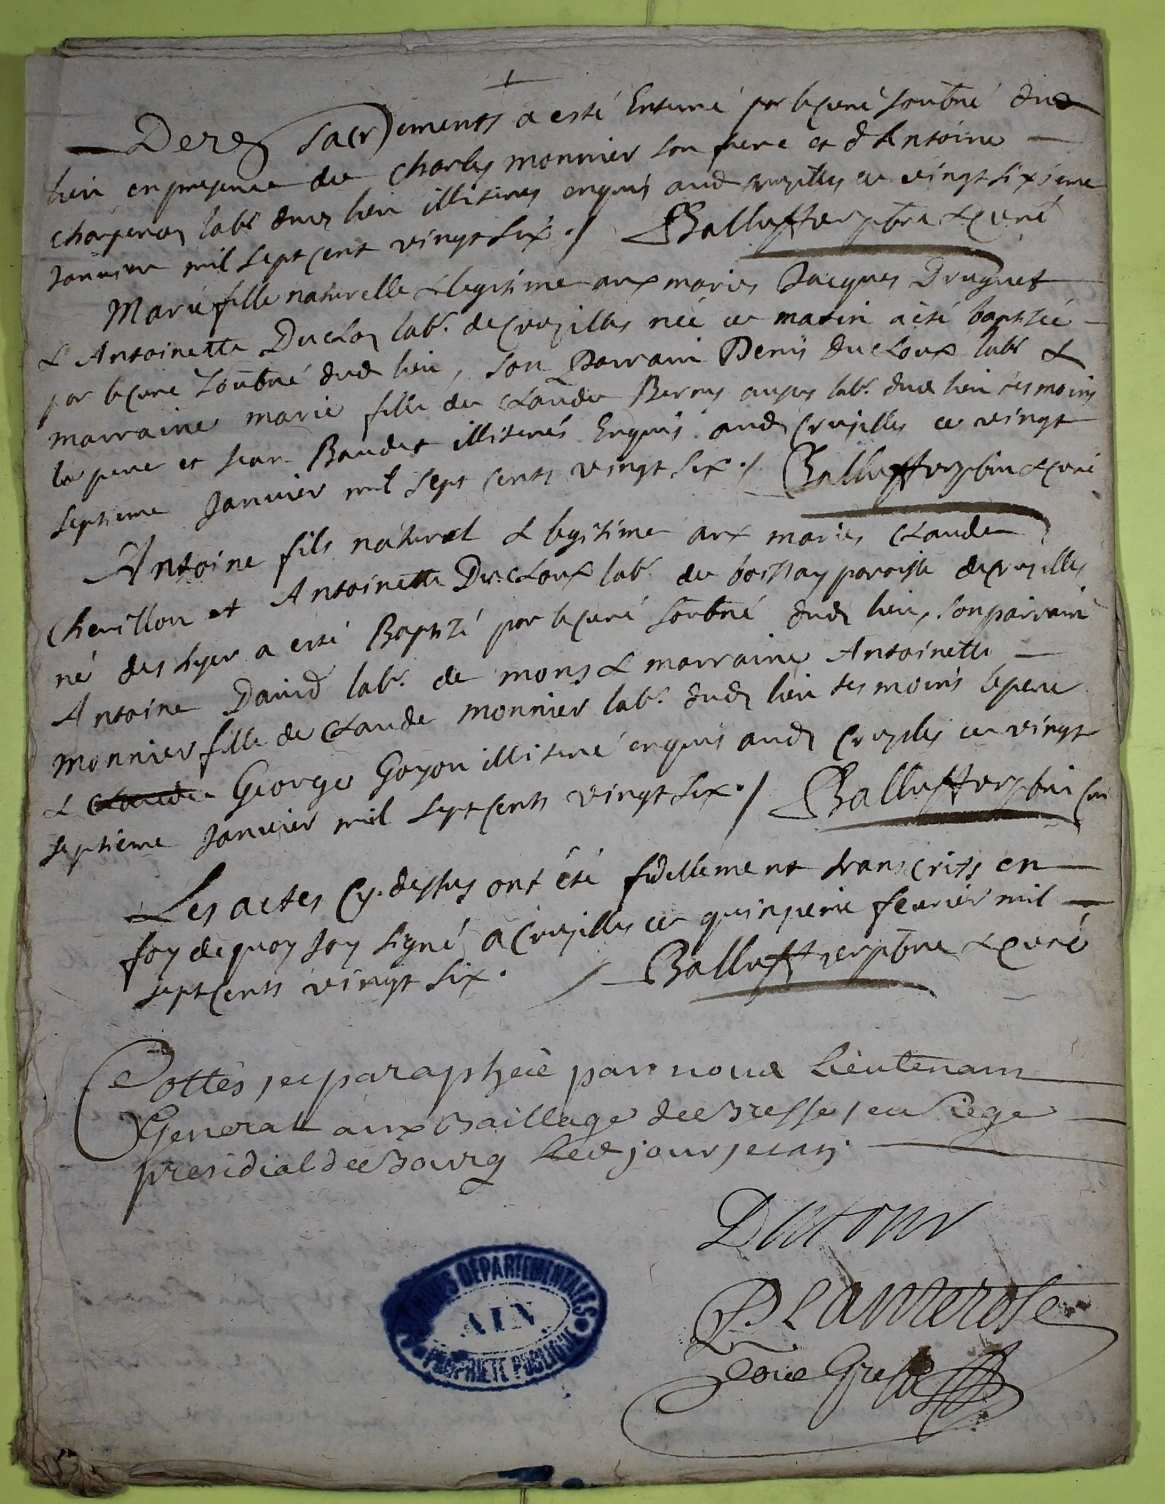 Dered Sacrements a esté Enterré par le curé soubné dud
lieu en presence de Charles monnier son frere et d'Antoine
lab. dud lieu illiteres enquis aud cruzilles ce vingt sixieme
Janvier mil sept cent vingt six ./. Balluffier pbre & curé
Marie fille naturelle & legitime aux mariés Jacques Druguet
& Antoinette Duclou lab. de Cruzilles née ce matin a été baptisée
par le curé soubné dud lieu, son Parrain Denis Ducloux lab. &
marraine marie fille de Claude lab. dud lieu tesmoins
le pere et Jean Baudet illiterés Enquis aud Cruzilles ce vingt
septieme Janvier mil sept cents vingt six ./. Balluffier pbre & curé
Antoine fils naturel & legitime aux mariés Claude
Chevillon et Antoinette Ducloux lab. de boissay paroisse de cruzilles
né des hyer a esté Baptizé par le curé soubné dud lieu, son pairrain
Antoine David lab. de mons & marraine Antoinette
monnier fille de Claude monnier lab. dud lieu tesmoins le pere
& Claude George Goyon illiteré enquis aud Cruzilles ce vingt
septieme Janvier mil sept cents vingt six ./. Balluffier pbre curé
Les actes cy-dessus ont été fidellement transcrits en
foy de quoy Jay signé a Cruzilles ce quinzieme fevrier mil
sept cents vingt six. Balluffier pbre & curé
Cottés, et paraphée par nous Lieutenant
General aux Baillage de Bresse, et siege
presidial de Bourg les jour, et an.
Dutour
P Lamerose
ARCHIVES DÉPARTEMENTALES
AIN
PROPRIÉTÉ PUBLIQUE